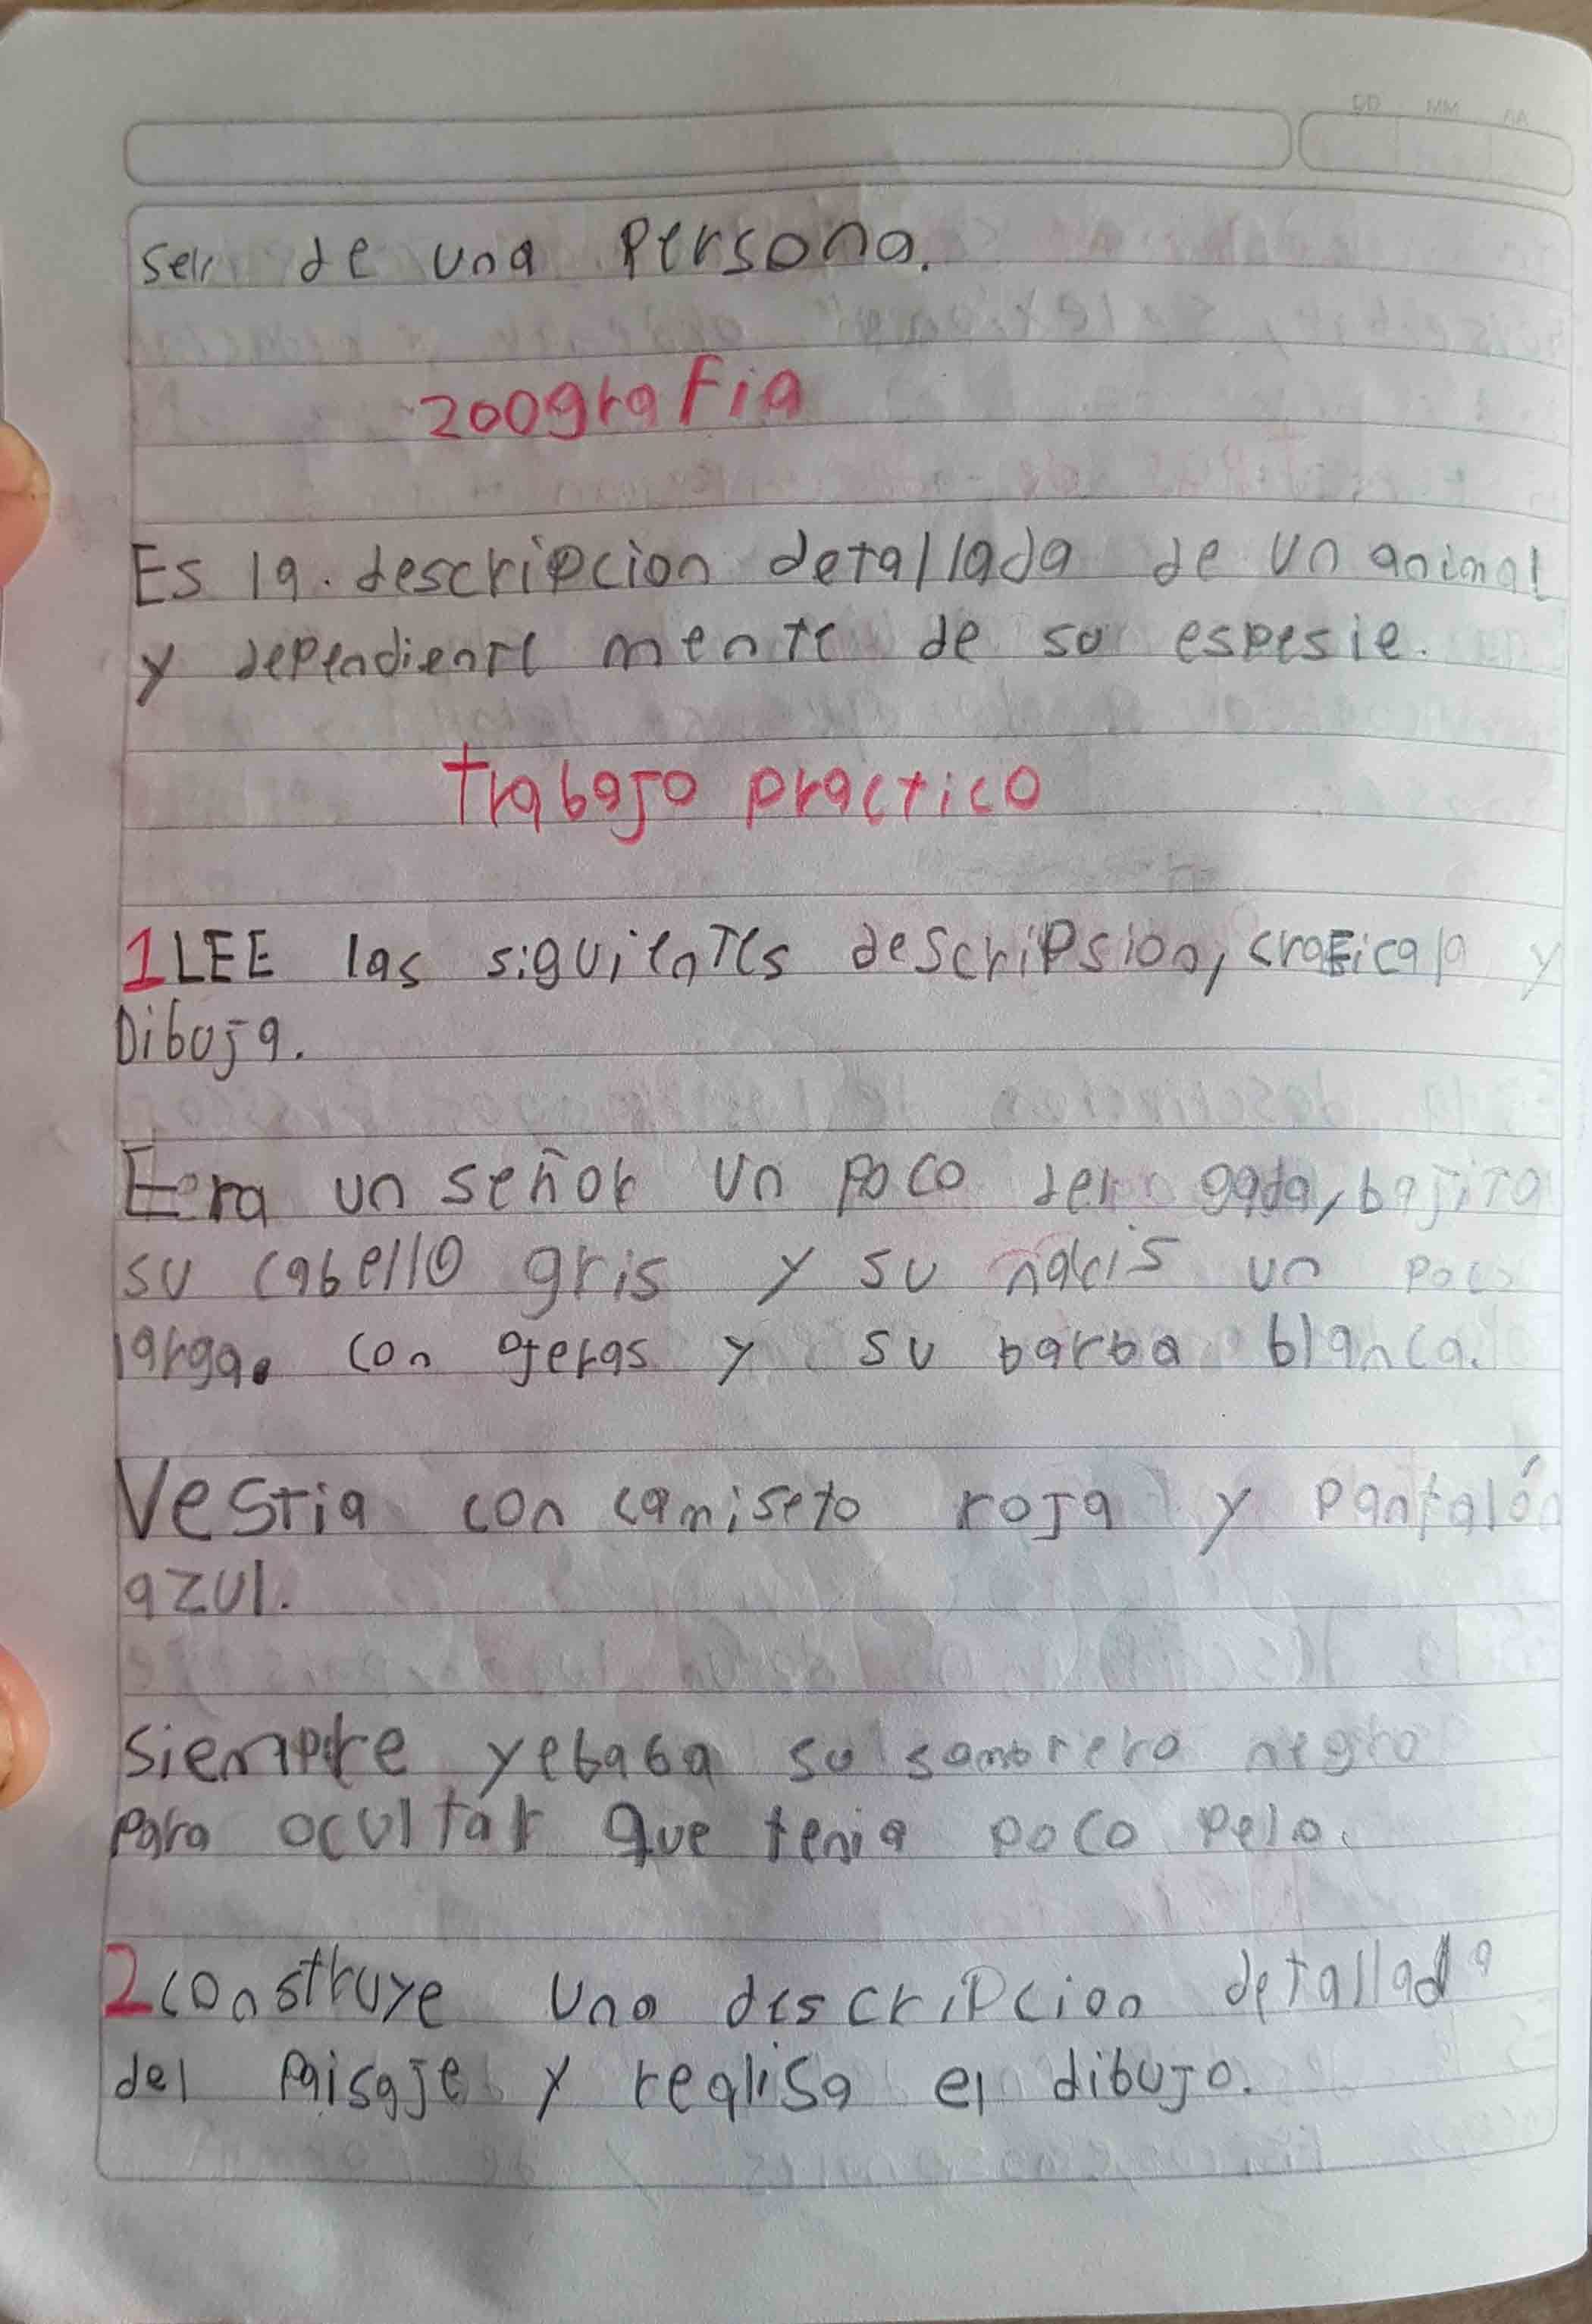 ser de una Persona.
zoografia
Es la descripcion detallada de un animal
y dependiente mente de su espesie.
trabajo practico
1 LEE las siguientes descripsion, craficala y
Dibuja.
Era un señor un poco del gada, bajito
su cabello gris y su naris un poco
larga. con ojeras y su barba blanca.
Vestia con camiseto roja y pantalón
azul.
siempre yebaba su sombrero negro
para ocultar que tenia poco pelo.
2 construye una descripcion detallada
del paisaje y realisa el dibujo.